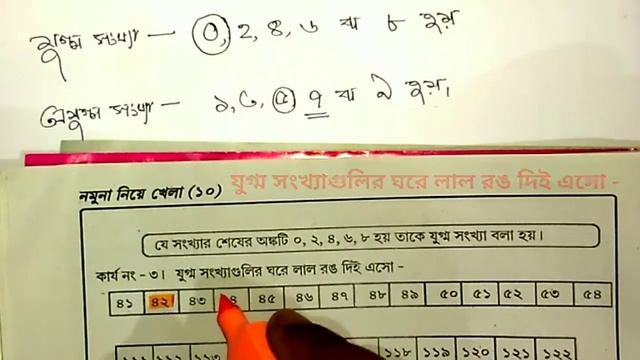 যুগ্ম সংখ্যা — ০, ২, ৪, ৬ বা ৮ হয়
অযুগ্ম সংখ্যা — ১, ৩, ৫ ৭ বা ৯ হয়,
নমুনা নিয়ে খেলা (১০) যুগ্ম সংখ্যাগুলির ঘরে লাল রঙ দিই এসো -
যে সংখ্যার শেষের অঙ্কটি ০, ২, ৪, ৬, ৮ হয় তাকে যুগ্ম সংখ্যা বলা হয়।
কার্য নং - ৩। যুগ্ম সংখ্যাগুলির ঘরে লাল রঙ দিই এসো -
৪১ ৪২ ৪৩ ৪৫ ৪৬ ৪৭ ৪৮ ৪৯ ৫০ ৫১ ৫২ ৫৩ ৫৪
১১১ ১১২ ১১৩ ১১৮ ১১৯ ১২০ ১২১ ১২২